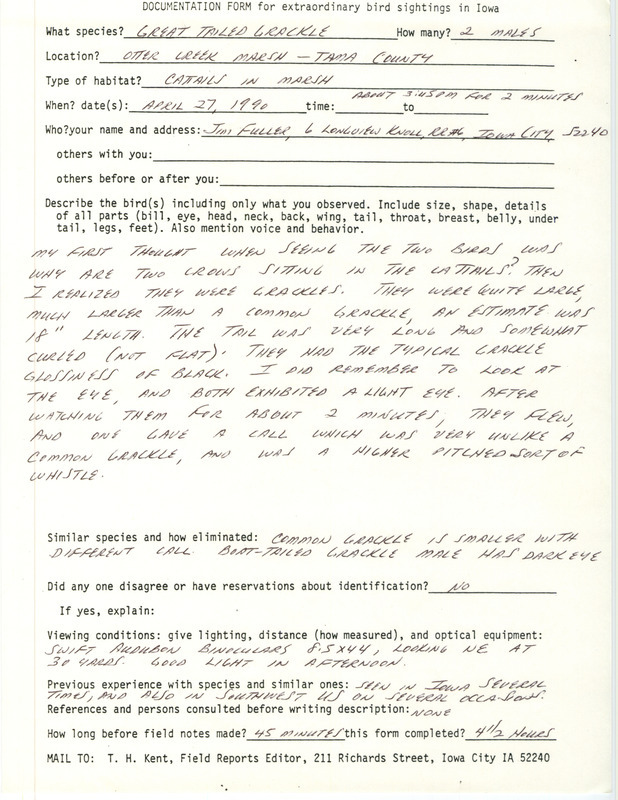 DOCUMENTATION FORM for extraordinary bird sightings in Iowa
What species? GREAT TAILED GRACKLE How many? 2 MALES
Location? OTTER CREEK MARSH - TAMA COUNTY
Type of habitat? CATTAILS IN MARSH
When? date(s): APRIL 27, 1990 time: ABOUT 3:45PM FOR 2 MINUTES to
Who? your name and address: JIM FULLER, 6 LONGVIEW KNOLL, RR#6, IOWA CITY, 52240
others with you:
others before or after you:
Describe the bird(s) including only what you observed. Include size, shape, details
of all parts (bill, eye, head, neck, back, wing, tail, throat, breast, belly, under
tail, legs, feet). Also mention voice and behavior.
MY FIRST THOUGHT WHEN SEEING THE TWO BIRDS WAS
WHY ARE TWO CROWS SITTING IN THE CATTAILS? THEN
I REALIZED THEY WERE GRACKLES. THEY WERE QUITE LARGE,
MUCH LARGER THAN A COMMON GRACKLE, AN ESTIMATE WAS
18" LENGTH. THE TAIL WAS VERY LONG AND SOMEWHAT
CURLED (NOT FLAT). THEY HAD THE TYPICAL GRACKLE
GLOSSINESS OF BLACK. I DID REMEMBER TO LOOK AT
THE EYE, AND BOTH EXHIBITED A LIGHT EYE. AFTER
WATCHING THEM FOR ABOUT 2 MINUTES, THEY FLEW,
AND ONE GAVE A CALL WHICH WAS VERY UNLIKE A
COMMON GRACKLE, AND WAS A HIGHER PITCHED SORT OF
WHISTLE.
Similar species and how eliminated: COMMON GRACKLE IS SMALLER WITH
DIFFERENT CALL. BOAT-TAILED GRACKLE MALE HAS DARK EYE
Did any one disagree or have reservations about identification? NO
If yes, explain:
Viewing conditions: give lighting, distance (how measured), and optical equipment:
SWIFT AUDUBON BINOCULARS 8.5X44, LOOKING NE AT
30 YARDS. GOOD LIGHT IN AFTERNOON.
Previous experience with species and similar ones: SEEN IN IOWA SEVERAL
TIMES, AND ALSO IN SOUTHWEST US ON SEVERAL OCCASIONS.
References and persons consulted before writing description: NONE
How long before field notes made? 45 MINUTES this form completed? 4 1/2 HOURS
MAIL TO: T. H. Kent, Field Reports Editor, 211 Richards Street, Iowa City IA 52240